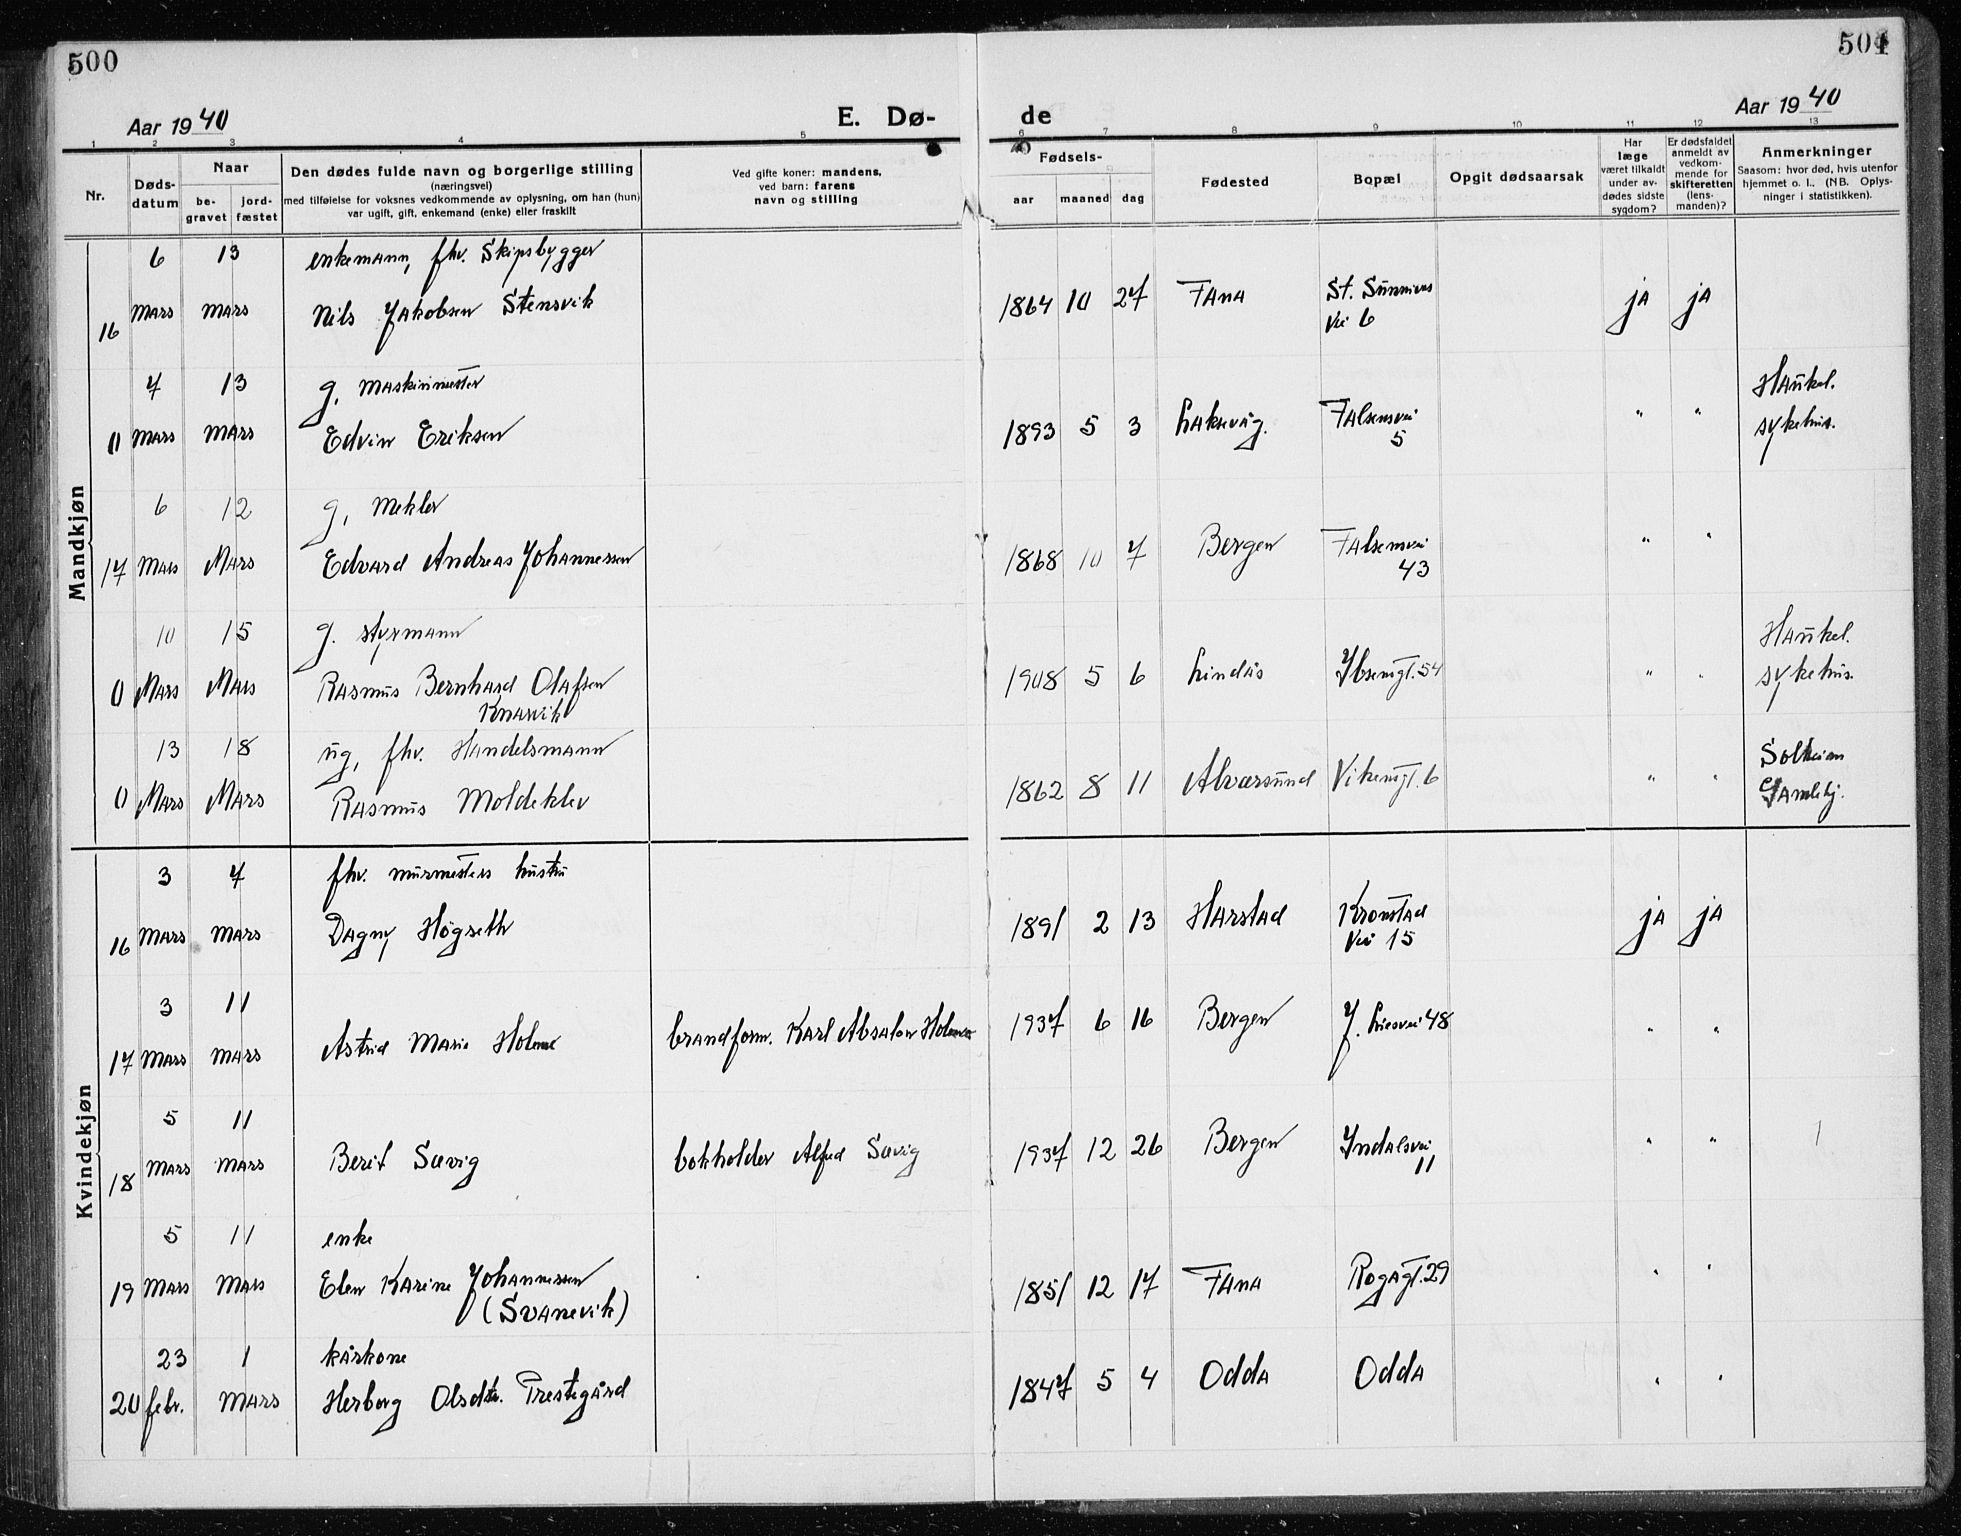 500
501
Aar 1940
E. Dø-
de
Aar 1940
1 2 3 4 5 6 7 8 9 10 11 12 13
Nr.
Døds-
datum
Naar
be-
gravet
jord-
fæstet
Den dødes fulde navn og borgerlige stilling
(næringsvei)
med tilføielse for voksnes vedkommende av oplysning, om han (hun)
var ugift, gift, enkemand (enke) eller fraskilt
Ved gifte koner: mandens,
ved barn: farens
navn og stilling
Fødsels-
aar maaned dag
Fødested
Bopæl
Opgit dødsaarsak
Har
læge
været tilkaldt
under av-
dødes sidste
sygdom?
Er dødsfaldet
anmeldt av
vedkom-
mende for
skifteretten
(lens-
manden)?
Anmerkninger
Saasom: hvor død, hvis utenfor
hjemmet o. l.. (NB. Oplys-
ninger i statistikken).
Mandkjøn
6 13 enkemann, fhv. Skipsbygger
16 Mars Mars Nils Jakobsen Stensvik 1864 10 27 Fana St. Sunnivas
Vei 6 ja ja
7 13 g, maskinmester Haukel.
0 Mars Mars Edvin Eriksen 1893 5 3 Laksevåg. Falsensvei
5 " " sykehus.
6 12 g, Mekler
17 Mars Mars Edvard Andreas Johannessen 1868 10 7 Bergen Falsensvei
43 " "
10 15 g. styrmann Haukel.
0 Mars Mars Rasmus Bernhard Olafsen 1908 5 6 Lindås Ibsensgt. 54 " " sykehus.
Knarvik
13 18 ug, fhv. Handelsmann Solheim
0 Mars Mars Rasmus Moldeklev 1862 8 11 Alversund Vikensgt. 6 " " Gamlehj.
Kvindekjøn
3 7 fhv. murmesters hustru
16 Mars Mars Dagny Høgseth 1891 2 13 Harstad Kronstad
Vei 15 ja ja
3 11
17 Mars Mars Astrid Marie Holme brandform. Karl Absalon Holme 1937 6 16 Bergen J. Liesvei 48 " "
5 11
18 Mars Mars Berit Sævig bokholder Alfred Sævig 1937 12 26 Bergen Indalsvei
11 " "
5 11 enke
19 Mars Mars Elen Karine Johannessen 1851 12 17 Fana Rogagt. 29 " "
(Svanevik)
23 1 kårkone
20 febr. Mars Herborg Olsdtr. Prestegård 1847 5 4 Odda Odda " "